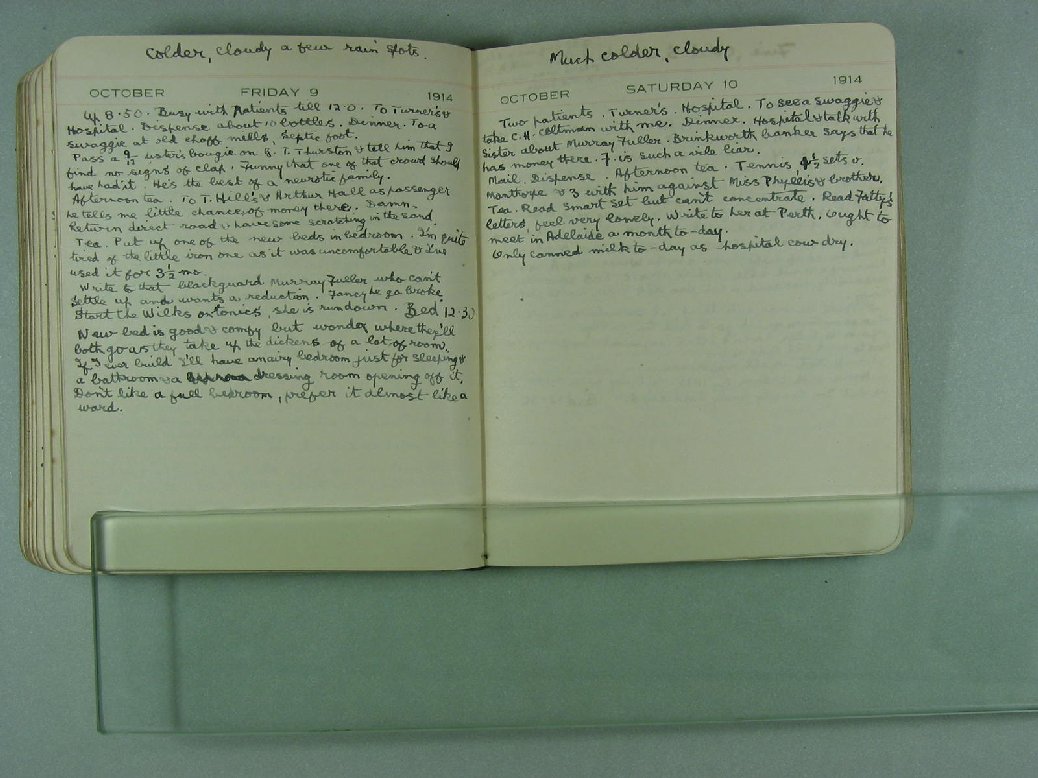 Colder, cloudy a few rain spots.
OCTOBER FRIDAY 9 1914
Up 8.50. Busy with Patients till 12.0. To Turner's &
Hospital. Dispense about 10 bottles. Dinner. To a
swaggie at old chaff mills, septic foot.
Pass a 9 bougie on G. T. Thurston & tell him that I
find no signs of clap. Funny that one of that crowd should
have had it. He's the best of a neurotic family.
Afternoon tea. To T. Hill's & Arthur Hall as passenger
he tells me little chance of money there. Damn.
Return direct road & have some scratching in the sand.
Tea. Put up one of the new beds in bedroom. I'm quite
tired of the little iron one as it was uncomfortable & I've
used it for 3½ mo.
Write to that blackguard Murray Fuller who can't
settle up and wants a reduction. Fancy he go broke.
Start the Wilks on tonics, she is run down. Bed 12.30
New bed is good & comfy but wonder where they'll
both go as they take up the dickens of a lot of room.
If I ever build I'll have an airy bedroom just for sleeping &
a bathroom & a dressing room opening off it.
Don't like a full bedroom, prefer it almost like a
ward.
Much colder, cloudy
OCTOBER SATURDAY 10 1914
Two patients. Turner's. Hospital. To see a swaggie &
take C.H. Coltman with me. Dinner. Hospital & talk with
Sister about Murray Fuller. Brinkworth banker says that he
has money there. F. is such a vile liar.
Mail. Dispense. Afternoon tea. Tennis ½ sets v.
Manthorpe & 3 with him against Miss Phyllis & brother.
Tea. Read Smart Set but can't concentrate. Read Fatty's
letters, feel very lonely. Write to her at Perth. Ought to
meet in Adelaide a month to-day.
Only canned milk to-day as hospital cow dry.